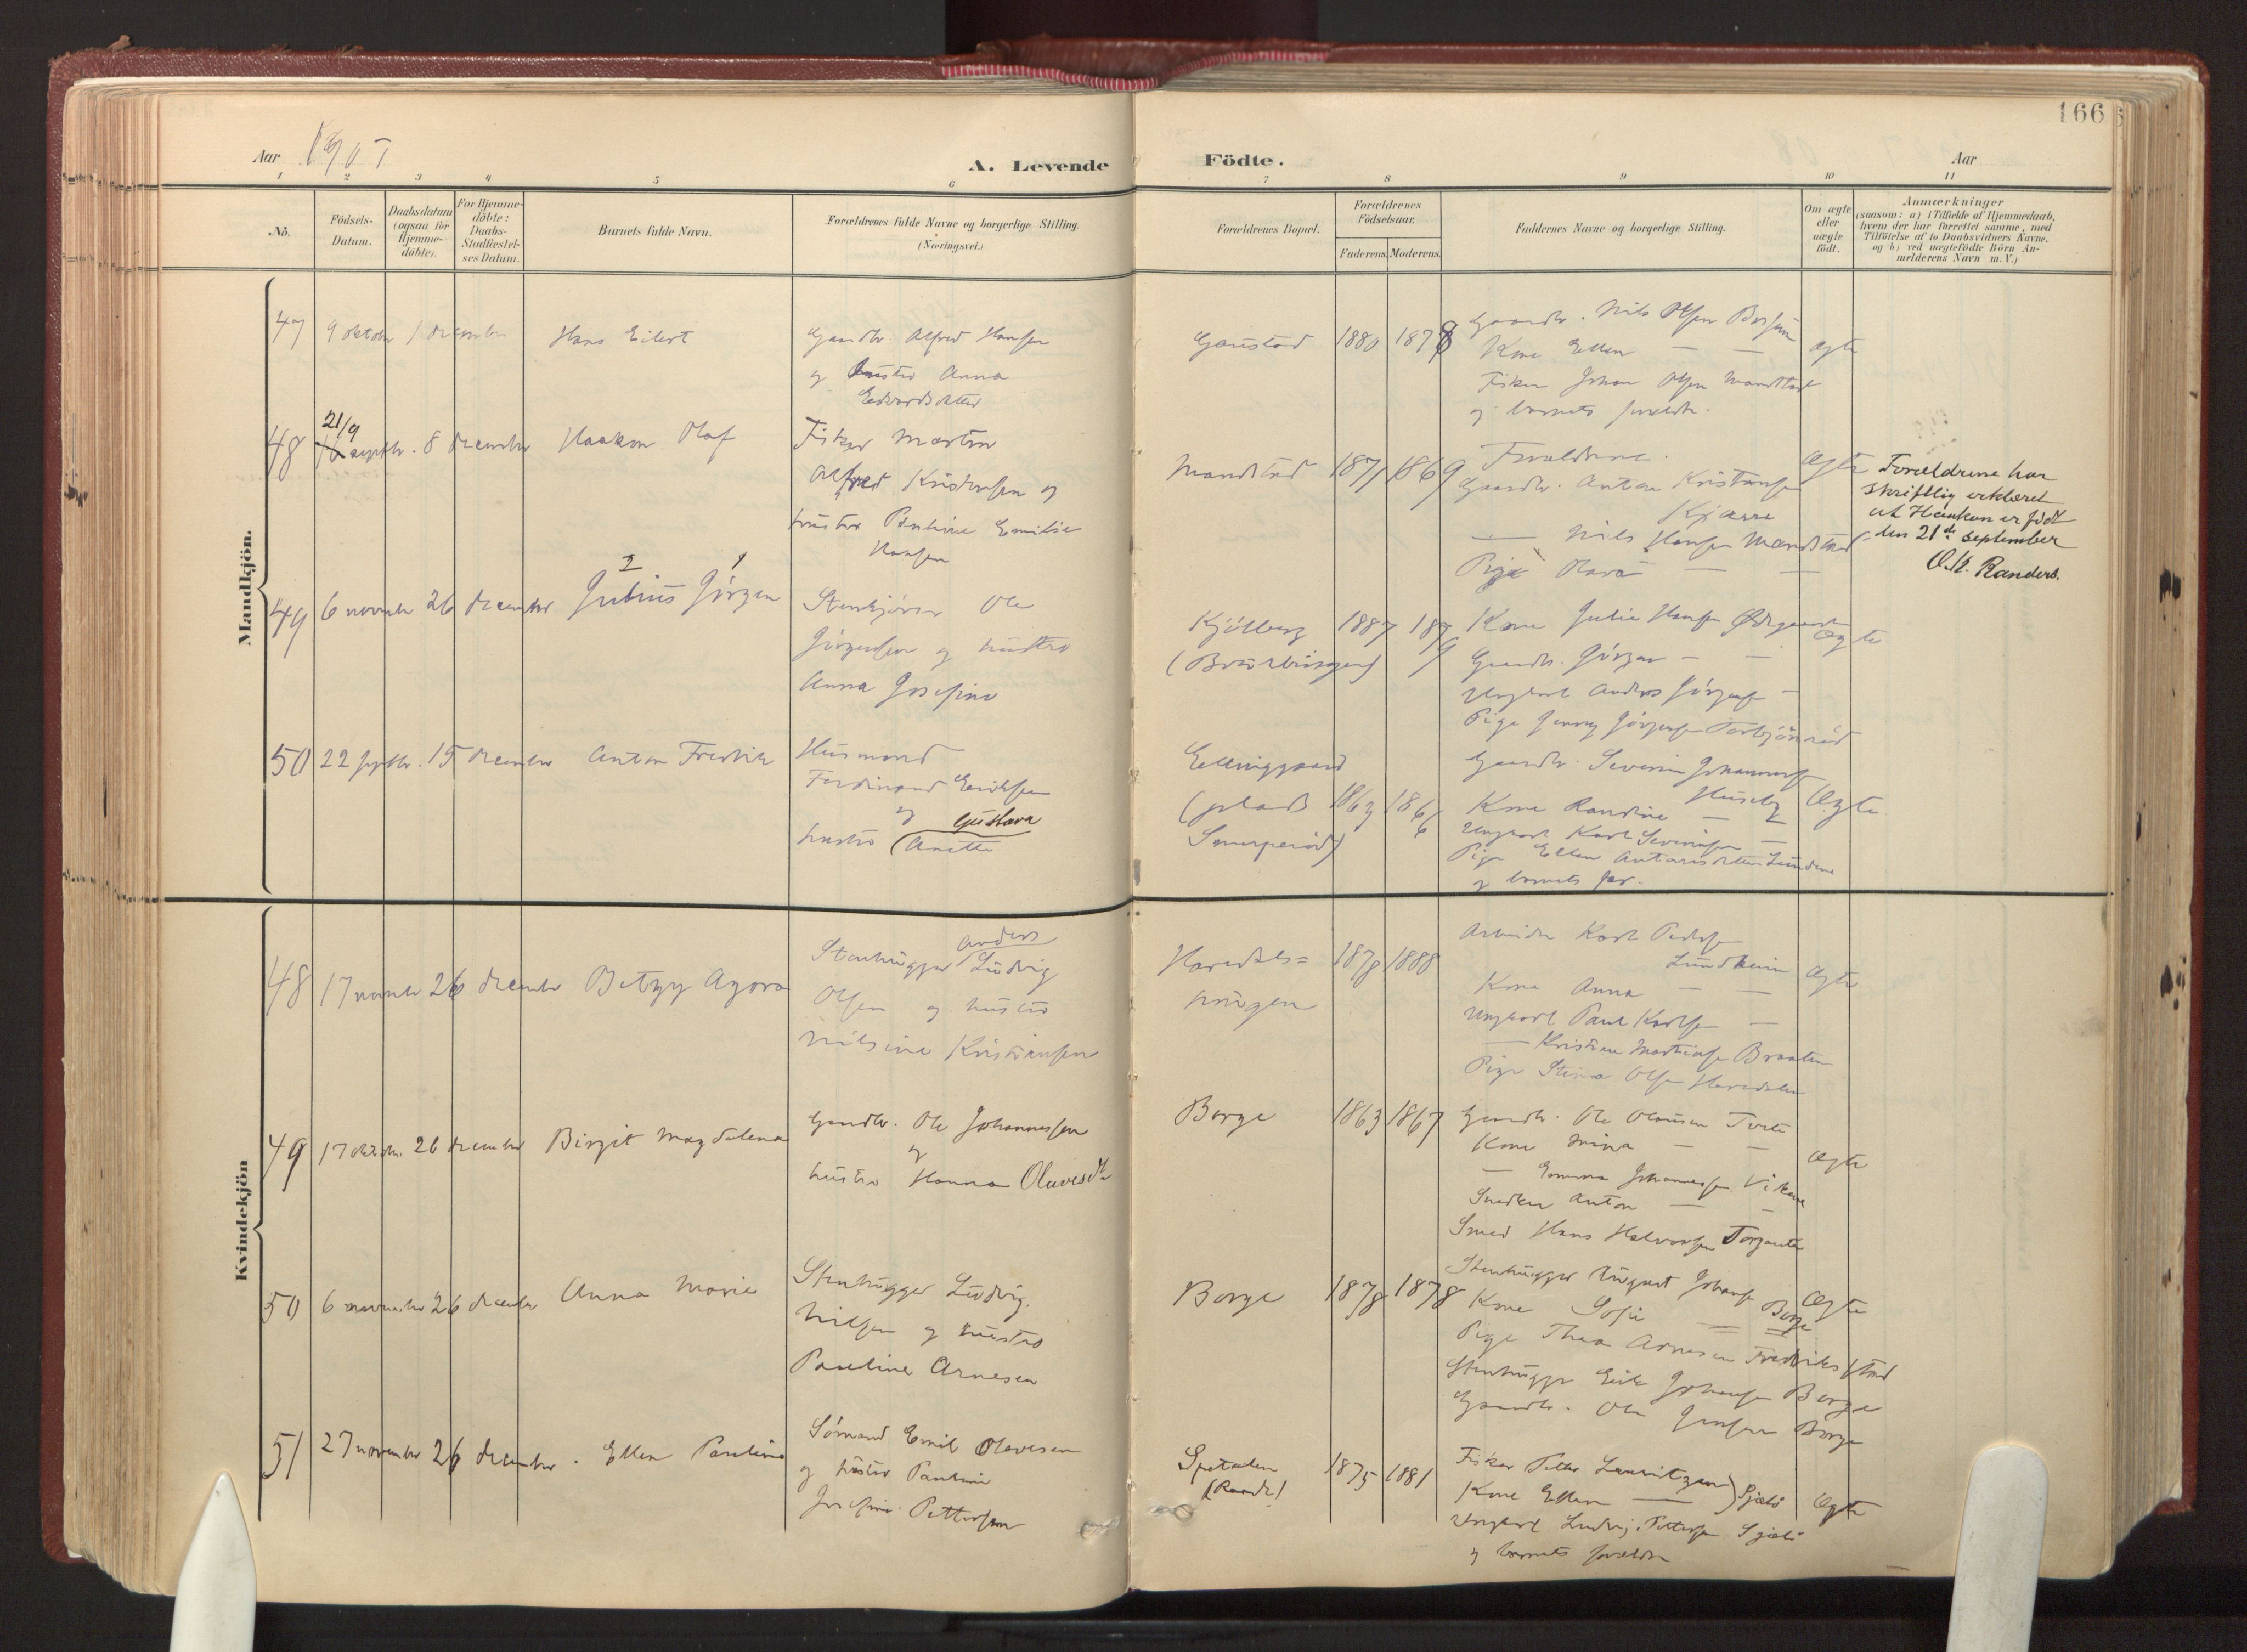 166
Aar 1907
A. Levende
Födte.
Aar
1 2 3 4 5 6 7 8 9 10 11
No.
Födsels-
Datum.
Daabsdatum
(ogsaa for
Hjemme-
döbte).
For Hjemme-
döbte:
Daabs-
Stadfæstel-
ses Datum.
Barnets fulde Navn.
Forældrenes fulde Navne og borgerlige Stilling.
(Næringsvei.)
Forældrenes Bopæl.
Forældrenes
Födselsaar.
Faderens. Moderens.
Faddernes Navne og borgerlige Stilling.
Om ægte
eller
uægte
födt.
Anmærkninger
(saasom: a) i Tilfælde af Hjemmedaab,
hvem der har forrettet samme, med
Tilföielse af to Daabsvidners Navne.
og b) ved uægtefödte Börn An-
melderens Navn m. V.)
Mandkjön.
47 9 oktober 1 december Hans Eilert
Gaardbr Alfred Hansen
og hustru Anna
Edvardsdatter
Gaustad 1880 1878
Gaardbr. Nils Olsen
Kone Ellen — —
Fisker Johan Olsen Mandstad
og barnets foreldre.
ægte
48 21/9 septbr. 8 december Haakon Olaf
Fisker Martin
Alfred Kristensen og
hustru Emilie
Hansen
Mandstad 1871 1869
Forældrene.
Gaardbr. Anton Kristensen
Kjærre
— Nils Hansen Mandstad
Pige Olava — —
Ægte
Forældrene har
skriftlig erklæret
at Haakon er födt
den 21de september
O.K. Randers.
49 6 novembr 26 december
2 1
Julius Jörgen
Ole
Jörgensen og hustru
Anna Josefine
Kjölberg
1887 1879
Kone Julie Hansen
Gaardbr. Jörgen — —
Ungkarl Anders Jörgensen —
Pige Jenny Jörgensen Torbjörnröd
Ægte
50 22 septbr. 15 december Anton Fredrik
Husmand
Ferdinand Eriksen
og Gustava
hustru (Anette
Ellinggaard
(plads
1863 1866
Gaardbr. Severin Johannesen
Huseby
Kone Randine —
Ungkarl Karl Severinsen —
Pige Ellen Antonsdatter Lunden
og barnets far.
Ægte
Kvindekjön
48 17 novembr 26 december Betzy Agora
Anders
Stenhugger Ludvig
Olsen og hustru
Nilsine Kristiansen
1878 1888
Arbeider Karl Pedersen
Lundheim
Kone Anna — —
Ungkarl Paul Karlsen —
— Kristian Mathisen Braaten
Pige Stina Olsen
Ægte
49 17 oktober. 26 december Birgit Magdalena
Gaardbr. Ole Johannessen
og
hustru Hanna Olavesdtr
Borge 1863 1867
Gaardbr. Ole Olausen Tvete
Kone Mina — —
— Emma Johannessen Vikene
Snedker Anton — —
Smed Hans Halvorsen Torgauten
Ægte
50 6 november 26 december Anna Marie
Stenhugger Ludvig
Nilsen og hustru
Pauline Arnesen
Borge 1878 1878
Stenhugger August Johansen Borge
Kone Sofie — —
Pige Thea Arnesen Fredrikstad
Stenhugger Erik Johansen Borge
Gaardbr. Ole Jensen Borge
Ægte
51 27 november 26 december. Ellen Pauline
Sömand Emil Olavesen
og hustru Pauline
Josefine Pettersen
Spetalen
(Raade)
1875 1881
Fisker Petter Lauritzen
Kone Ellen — ) Sjælö
Ungkarl Ludvig Pettersen Sjælö
og barnets foreldre
Ægte